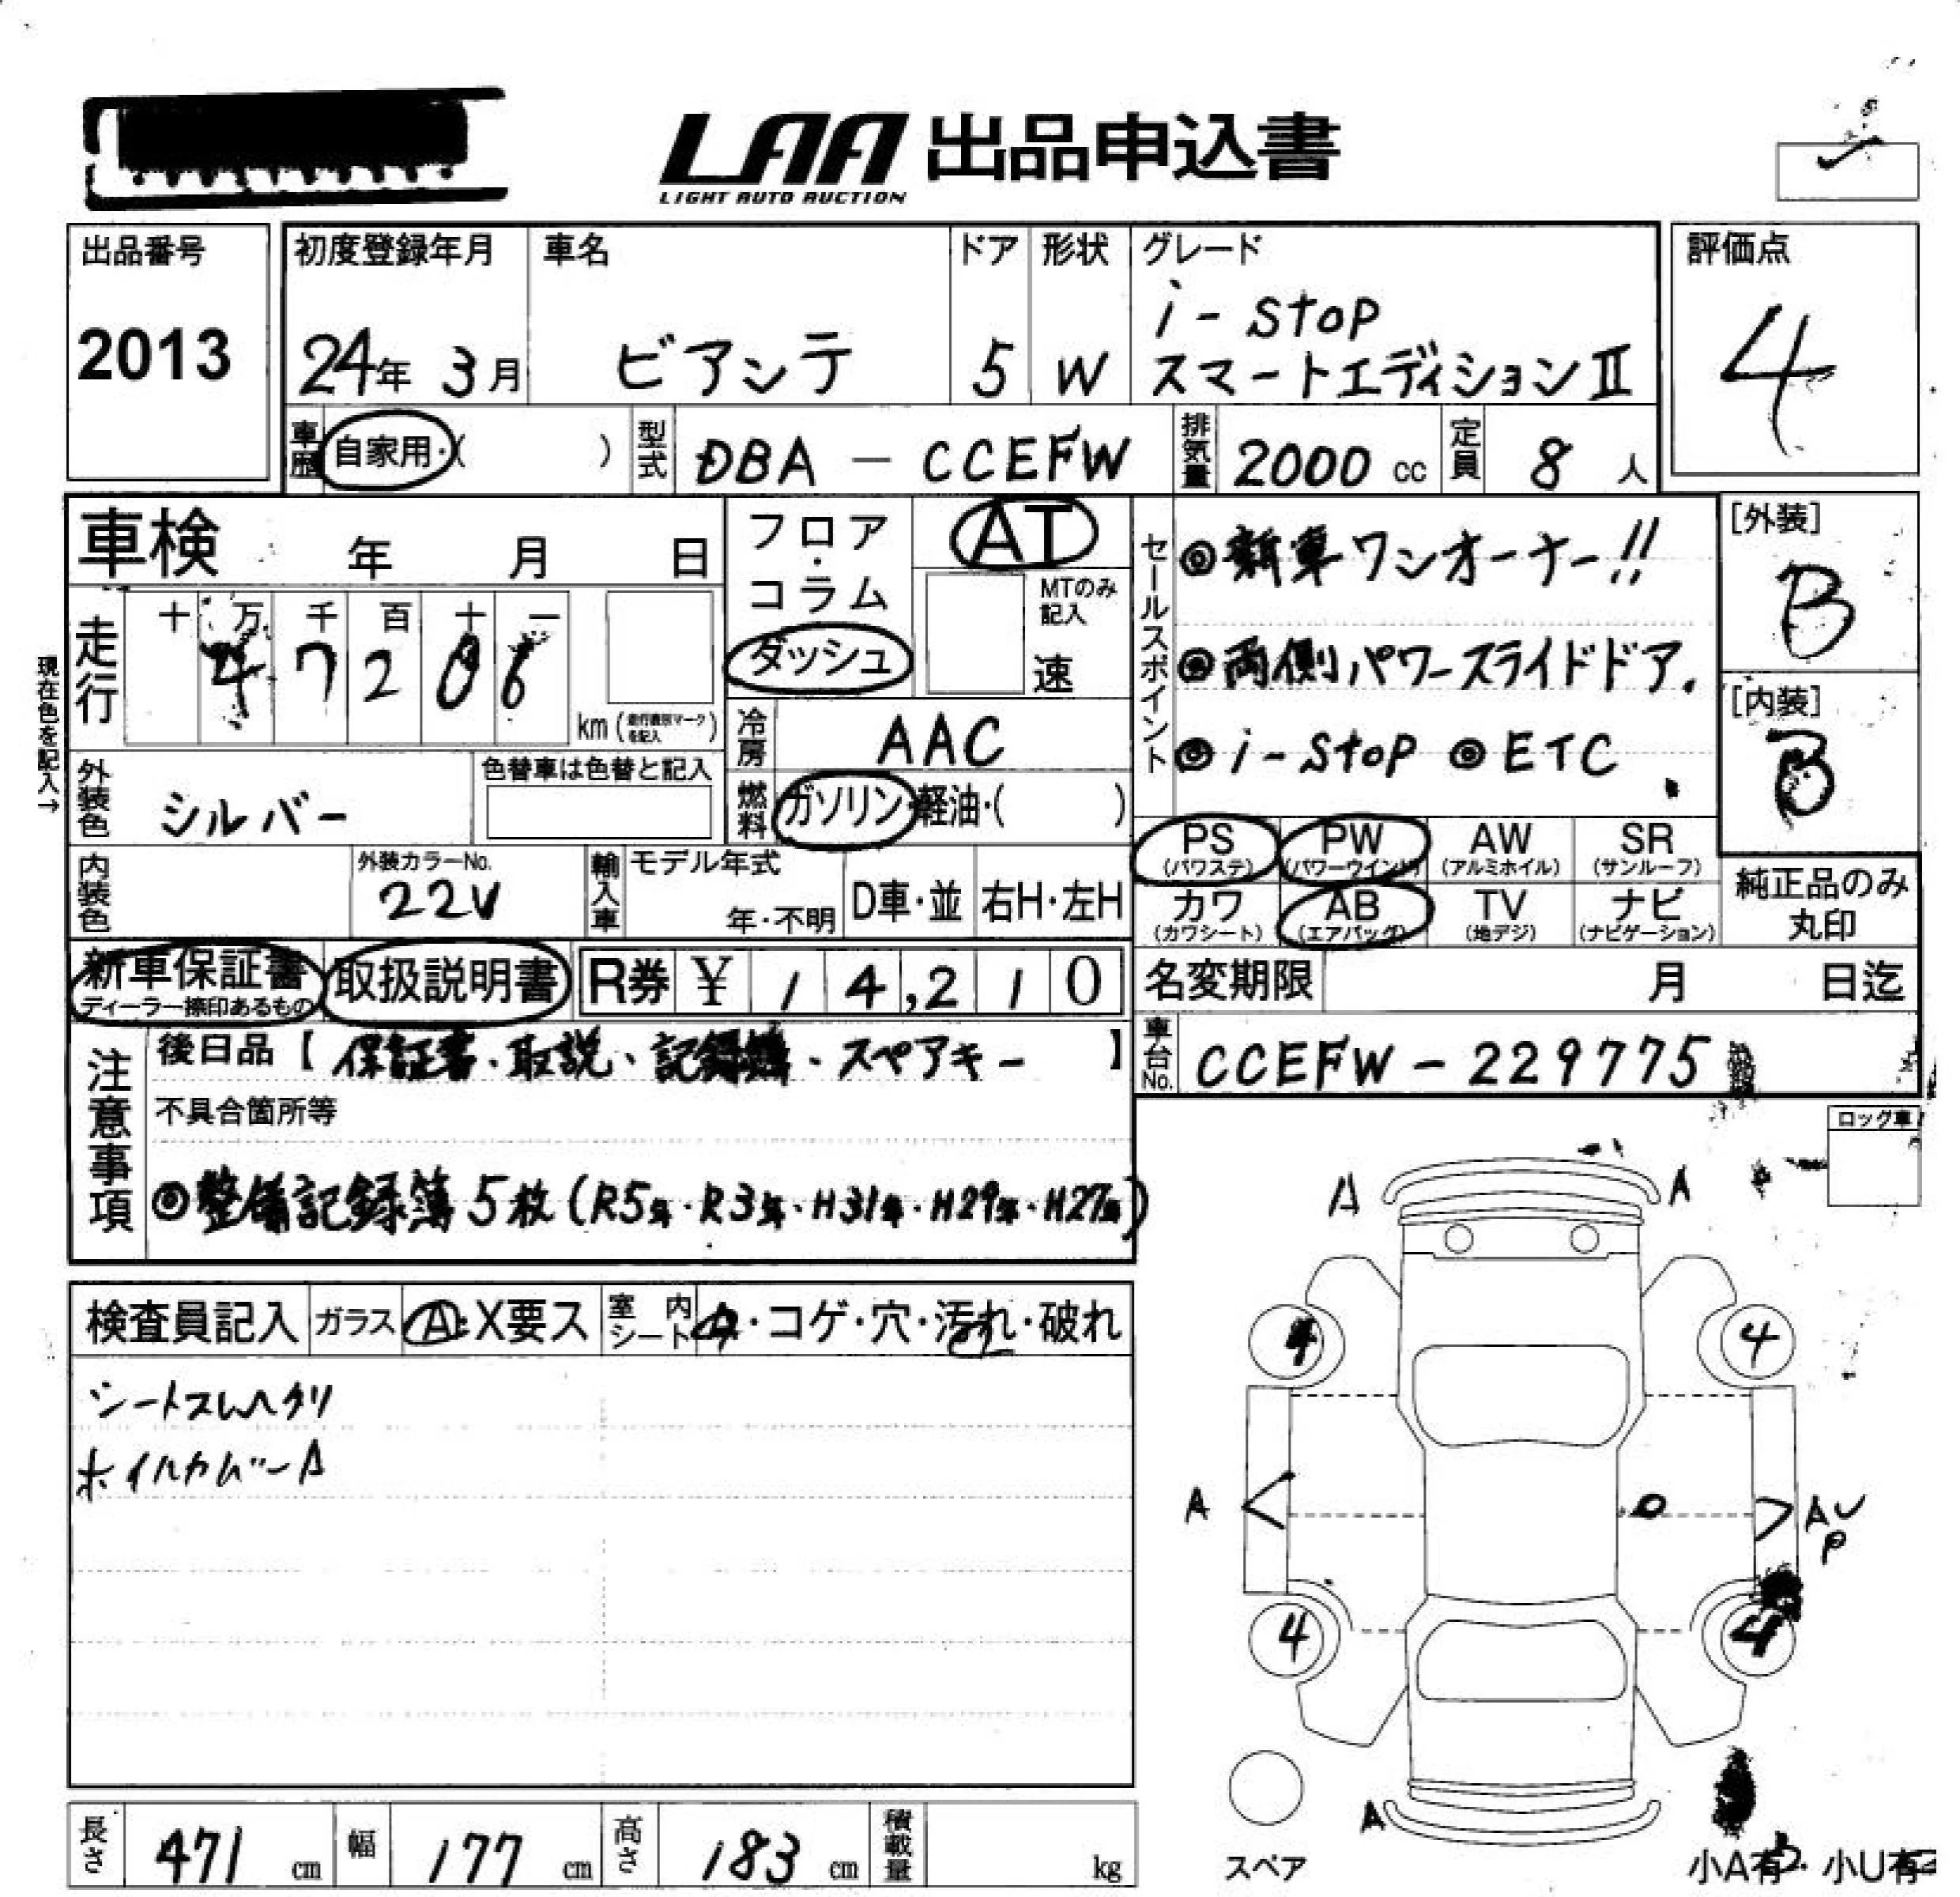 LAA 出品申込書
LIGHT AUTO AUCTION
出品番号
2013
初度登録年月 車名 ドア 形状 グレード
24年 3月 ビアンテ 5 W i-stop
スマートエディションⅡ
評価点
4
車歴 自家用・( ) 型式 DBA-CCEFW 排気量 2000 cc 定員 8 人
車検 年 月 日
フロア・コラム
ダッシュ
AT
MTのみ記入
速
現在色を記入→
走行 十 万 千 百 十 一
47206
km (走行距離マークを記入)
冷房 AAC
外装色 シルバー
色替車は色替と記入
燃料 ガソリン・軽油・( )
内装色
外装カラーNo.
22V
輸入車 モデル年式
年・不明 D車・並 右H・左H
セールスポイント
◎新車ワンオーナー!!
◎両側パワースライドドア.
◎i-stop ◎ETC
[外装]
B
[内装]
B
PS (パワステ) PW (パワーウインド) AW (アルミホイル) SR (サンルーフ)
カワ (カワシート) AB (エアバッグ) TV (地デジ) ナビ (ナビゲーション)
純正品のみ
丸印
新車保証書
ディーラー捺印あるもの
取扱説明書
R券 ¥ 14,210
名変期限 月 日迄
車台No. CCEFW-229775
注意事項
後日品【保証書・取説、記録簿・スペアキー】
不具合箇所等
◎整備記録簿5枚(R5年・R3年・H31年・H29年・H27年)
ロック車
検査員記入 ガラス A・X要ス 室内シート ・コゲ・穴・汚れ・破れ
シートスレヘタリ
ホイルカバーA
A A
4 4
A AU
P
4 4
A
スペア
小A有・小U有
長さ 471 cm 幅 177 cm 高さ 183 cm 積載量 kg